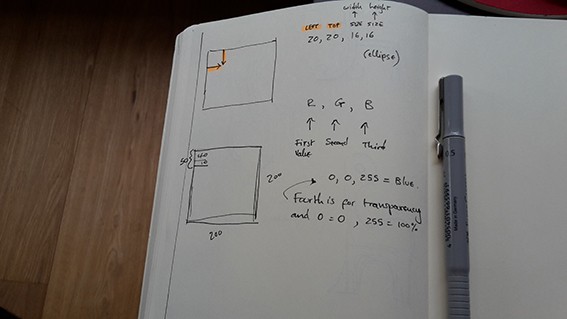 width height
LEFT TOP SIZE SIZE
20, 20, 16, 16
(ellipse)
R, G, B
First Second Third
Value
50
200
0, 0, 255 = Blue.
Fourth is for transparency
and 0 = 0, 255 = 100%
200
0.5